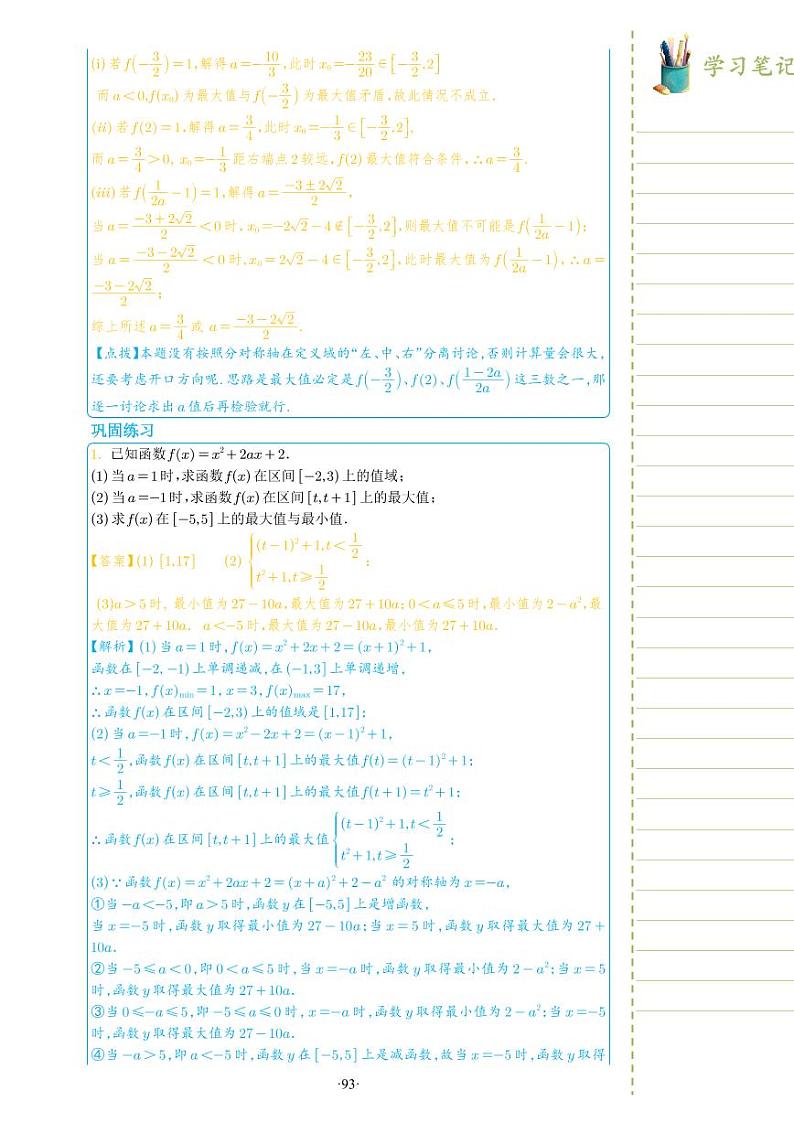 学习笔记
(i) 若 f(-3/2) = 1,解得 a = -10/3,此时 x₀ = -23/20 ∈ [-3/2, 2]
而 a < 0,f(x₀) 为最大值与 f(-3/2) 为最大值矛盾,故此情况不成立.
(ii) 若 f(2) = 1,解得 a = 3/4,此时 x₀ = -1/3 ∈ [-3/2, 2],
而 a = 3/4 > 0, x₀ = -1/3 距右端点 2 较远,f(2) 最大值符合条件,∴ a = 3/4.
(iii) 若 f(1/2a - 1) = 1,解得 a = (-3 ± 2√2)/2,
当 a = (-3 + 2√2)/2 < 0 时,x₀ = -2√2 - 4 ∉ [-3/2, 2],则最大值不可能是 f(1/2a - 1);
当 a = (-3 - 2√2)/2 < 0 时,x₀ = 2√2 - 4 ∈ [-3/2, 2],此时最大值为 f(1/2a - 1),∴ a =
(-3 - 2√2)/2;
综上所述 a = 3/4 或 a = (-3 - 2√2)/2.
【点拨】本题没有按照分对称轴在定义域的“左、中、右”分离讨论,否则计算量会很大,
还要考虑开口方向呢. 思路是最大值必定是 f(-3/2)、f(2)、f((1 - 2a)/2a) 这三数之一,那
逐一讨论求出 a 值后再检验就行.
巩固练习
1. 已知函数 f(x) = x² + 2ax + 2.
(1) 当 a = 1 时,求函数 f(x) 在区间 [-2,3) 上的值域;
(2) 当 a = -1 时,求函数 f(x) 在区间 [t,t+1] 上的最大值;
(3) 求 f(x) 在 [-5,5] 上的最大值与最小值.
【答案】(1) [1,17] (2) { (t-1)² + 1, t < 1/2
t² + 1, t ≥ 1/2 ;
(3)a > 5 时, 最小值为 27 - 10a,最大值为 27 + 10a; 0 < a ≤ 5 时,最小值为 2 - a²,最
大值为 27 + 10a. a < -5 时,最大值为 27 - 10a,最小值为 27 + 10a.
【解析】(1) 当 a = 1 时,f(x) = x² + 2x + 2 = (x+1)² + 1,
函数在 [-2, -1) 上单调递减,在 (-1,3] 上单调递增,
∴ x = -1, f(x)min = 1, x = 3, f(x)max = 17,
∴ 函数 f(x) 在区间 [-2,3) 上的值域是 [1,17];
(2) 当 a = -1 时, f(x) = x² - 2x + 2 = (x-1)² + 1,
t < 1/2,函数 f(x) 在区间 [t,t+1] 上的最大值 f(t) = (t-1)² + 1;
t ≥ 1/2,函数 f(x) 在区间 [t,t+1] 上的最大值 f(t+1) = t² + 1;
∴ 函数 f(x) 在区间 [t,t+1] 上的最大值 { (t-1)² + 1, t < 1/2
t² + 1, t ≥ 1/2 ;
(3) ∵ 函数 f(x) = x² + 2ax + 2 = (x+a)² + 2 - a² 的对称轴为 x = -a,
①当 -a < -5,即 a > 5 时,函数 y 在 [-5,5] 上是增函数,
当 x = -5 时,函数 y 取得最小值为 27 - 10a;当 x = 5 时,函数 y 取得最大值为 27 +
10a.
②当 -5 ≤ a < 0,即 0 < a ≤ 5 时,当 x = -a 时,函数 y 取得最小值为 2 - a²;当 x = 5
时,函数 y 取得最大值为 27 + 10a.
③当 0 ≤ -a ≤ 5,即 -5 ≤ a ≤ 0 时, x = -a 时,函数 y 取得最小值为 2 - a²;当 x = -5
时,函数 y 取得最大值为 27 - 10a.
④当 -a > 5,即 a < -5 时,函数 y 在 [-5,5] 上是减函数,故当 x = -5 时,函数 y 取得
·93·